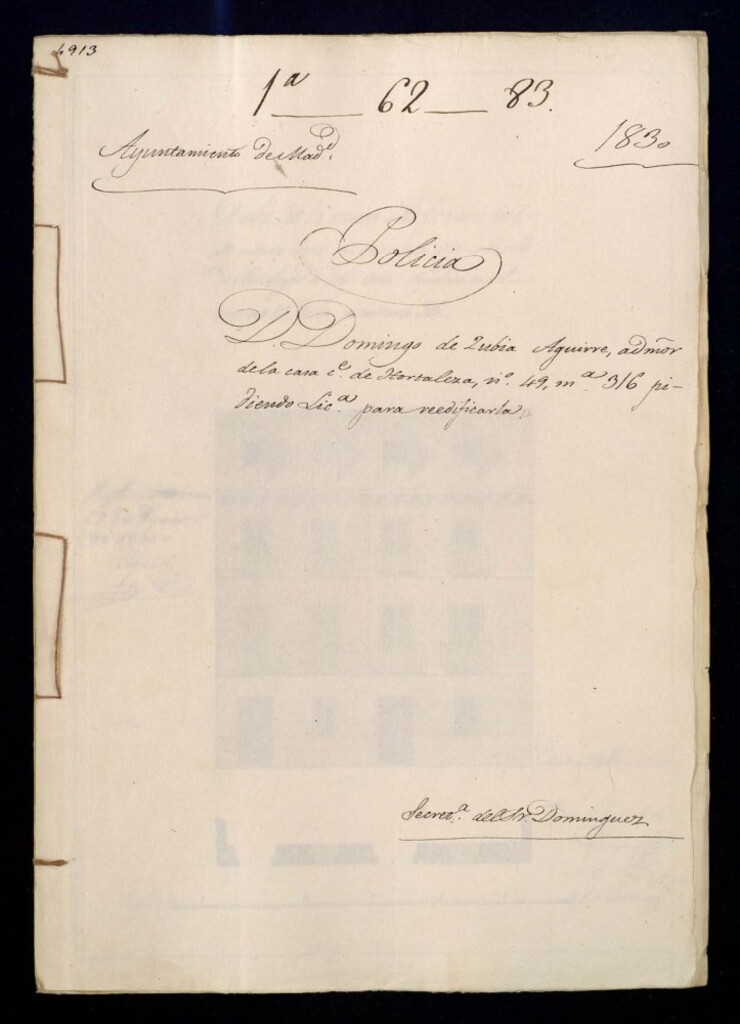 4913
1ª 62 83.
Ayuntamiento de Madᵈ.
1830
Policia
D. Domingo de Zubia Aguirre, admõr
de la casa cᵉ. de Hortaleza, nº. 49, mª 316 pi-
diendo Licª. para reedificarla.
Secretª. del Sr. Dominguez